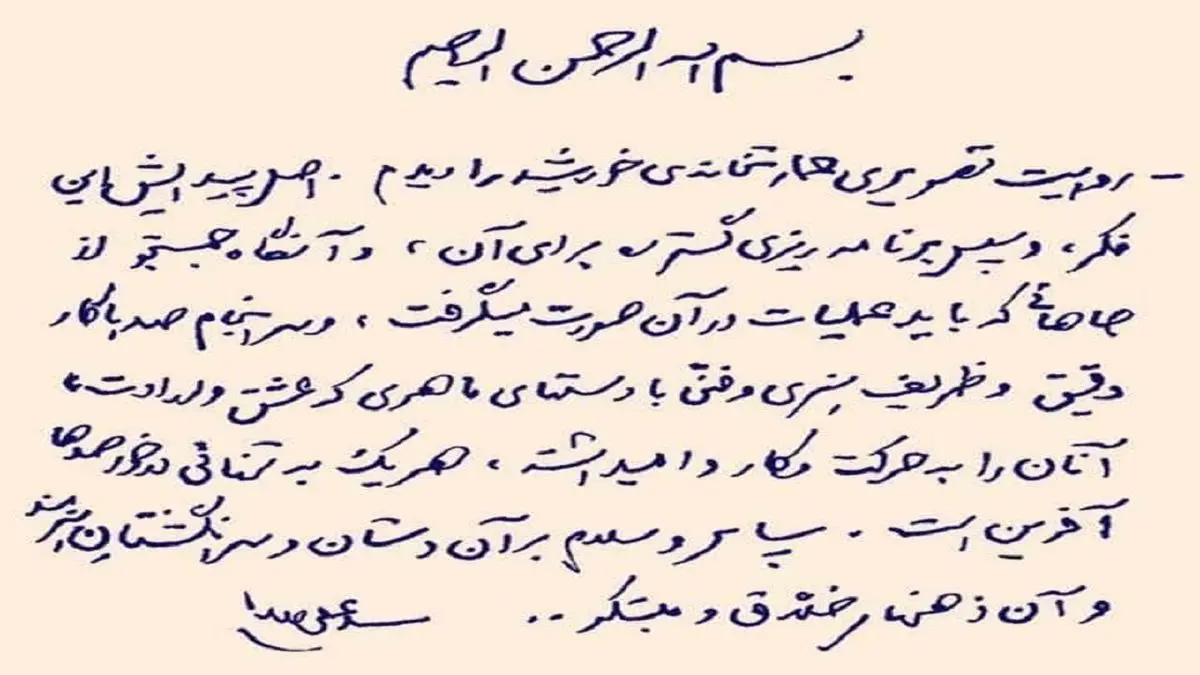 بسم الله الرحمن الرحیم
- روایت تصویری نگارخانه‌ی خورشید را دیدم . اصل پیدایش این
فکر، و سپس برنامه ریزی گسترده برای آن ، و آنگاه جستجو از
جاهائی که باید عملیات در آن صورت میگرفت ، و سرانجام صدها کار
دقیق و ظریف هنری و فنّی با دستهای ماهری که عشق و ارادت،
آنان را به حرکت و کار وامیداشته ، هر یک به تنهائی در خور صدها
آفرین است . سپاس و سلام بر آن دستان و سرانگشتان هنرمند
و آن ذهنهای خلاق و مبتکر ..